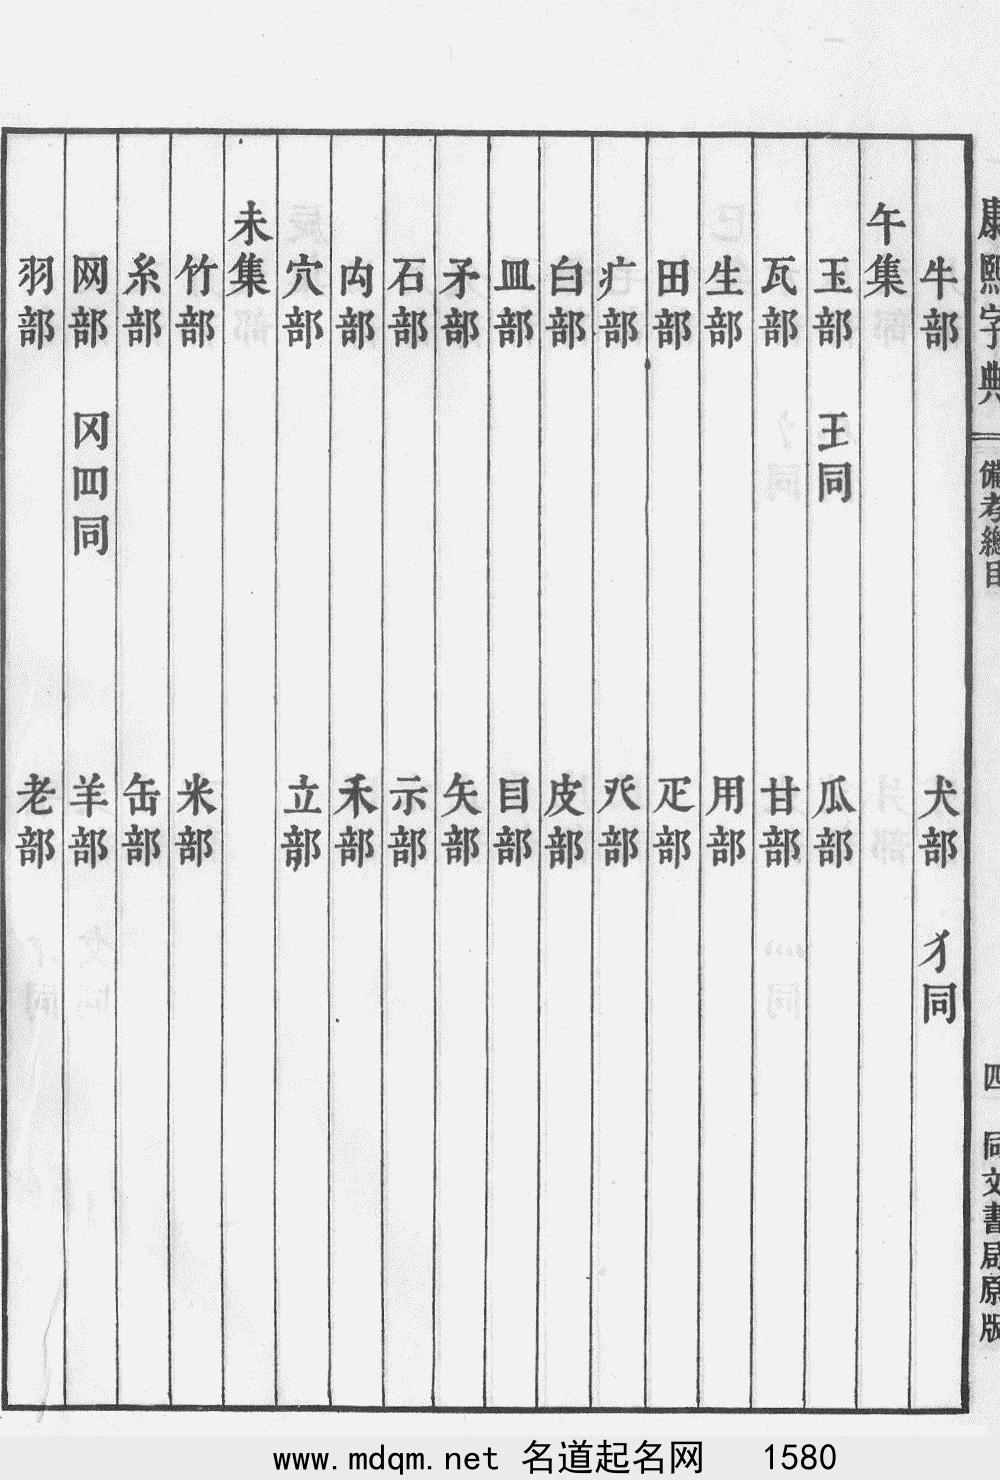 康熙字典 備考總目 四 同文書局原版
牛部 犬部 犭同
午集
玉部 王同 瓜部
瓦部 甘部
生部 用部
田部 疋部
疒部 癶部
白部 皮部
皿部 目部
矛部 矢部
石部 示部
禸部 禾部
穴部 立部
未集
竹部 米部
糸部 缶部
网部 冈罒同 羊部
羽部 老部
www.mdqm.net 名道起名网 1580